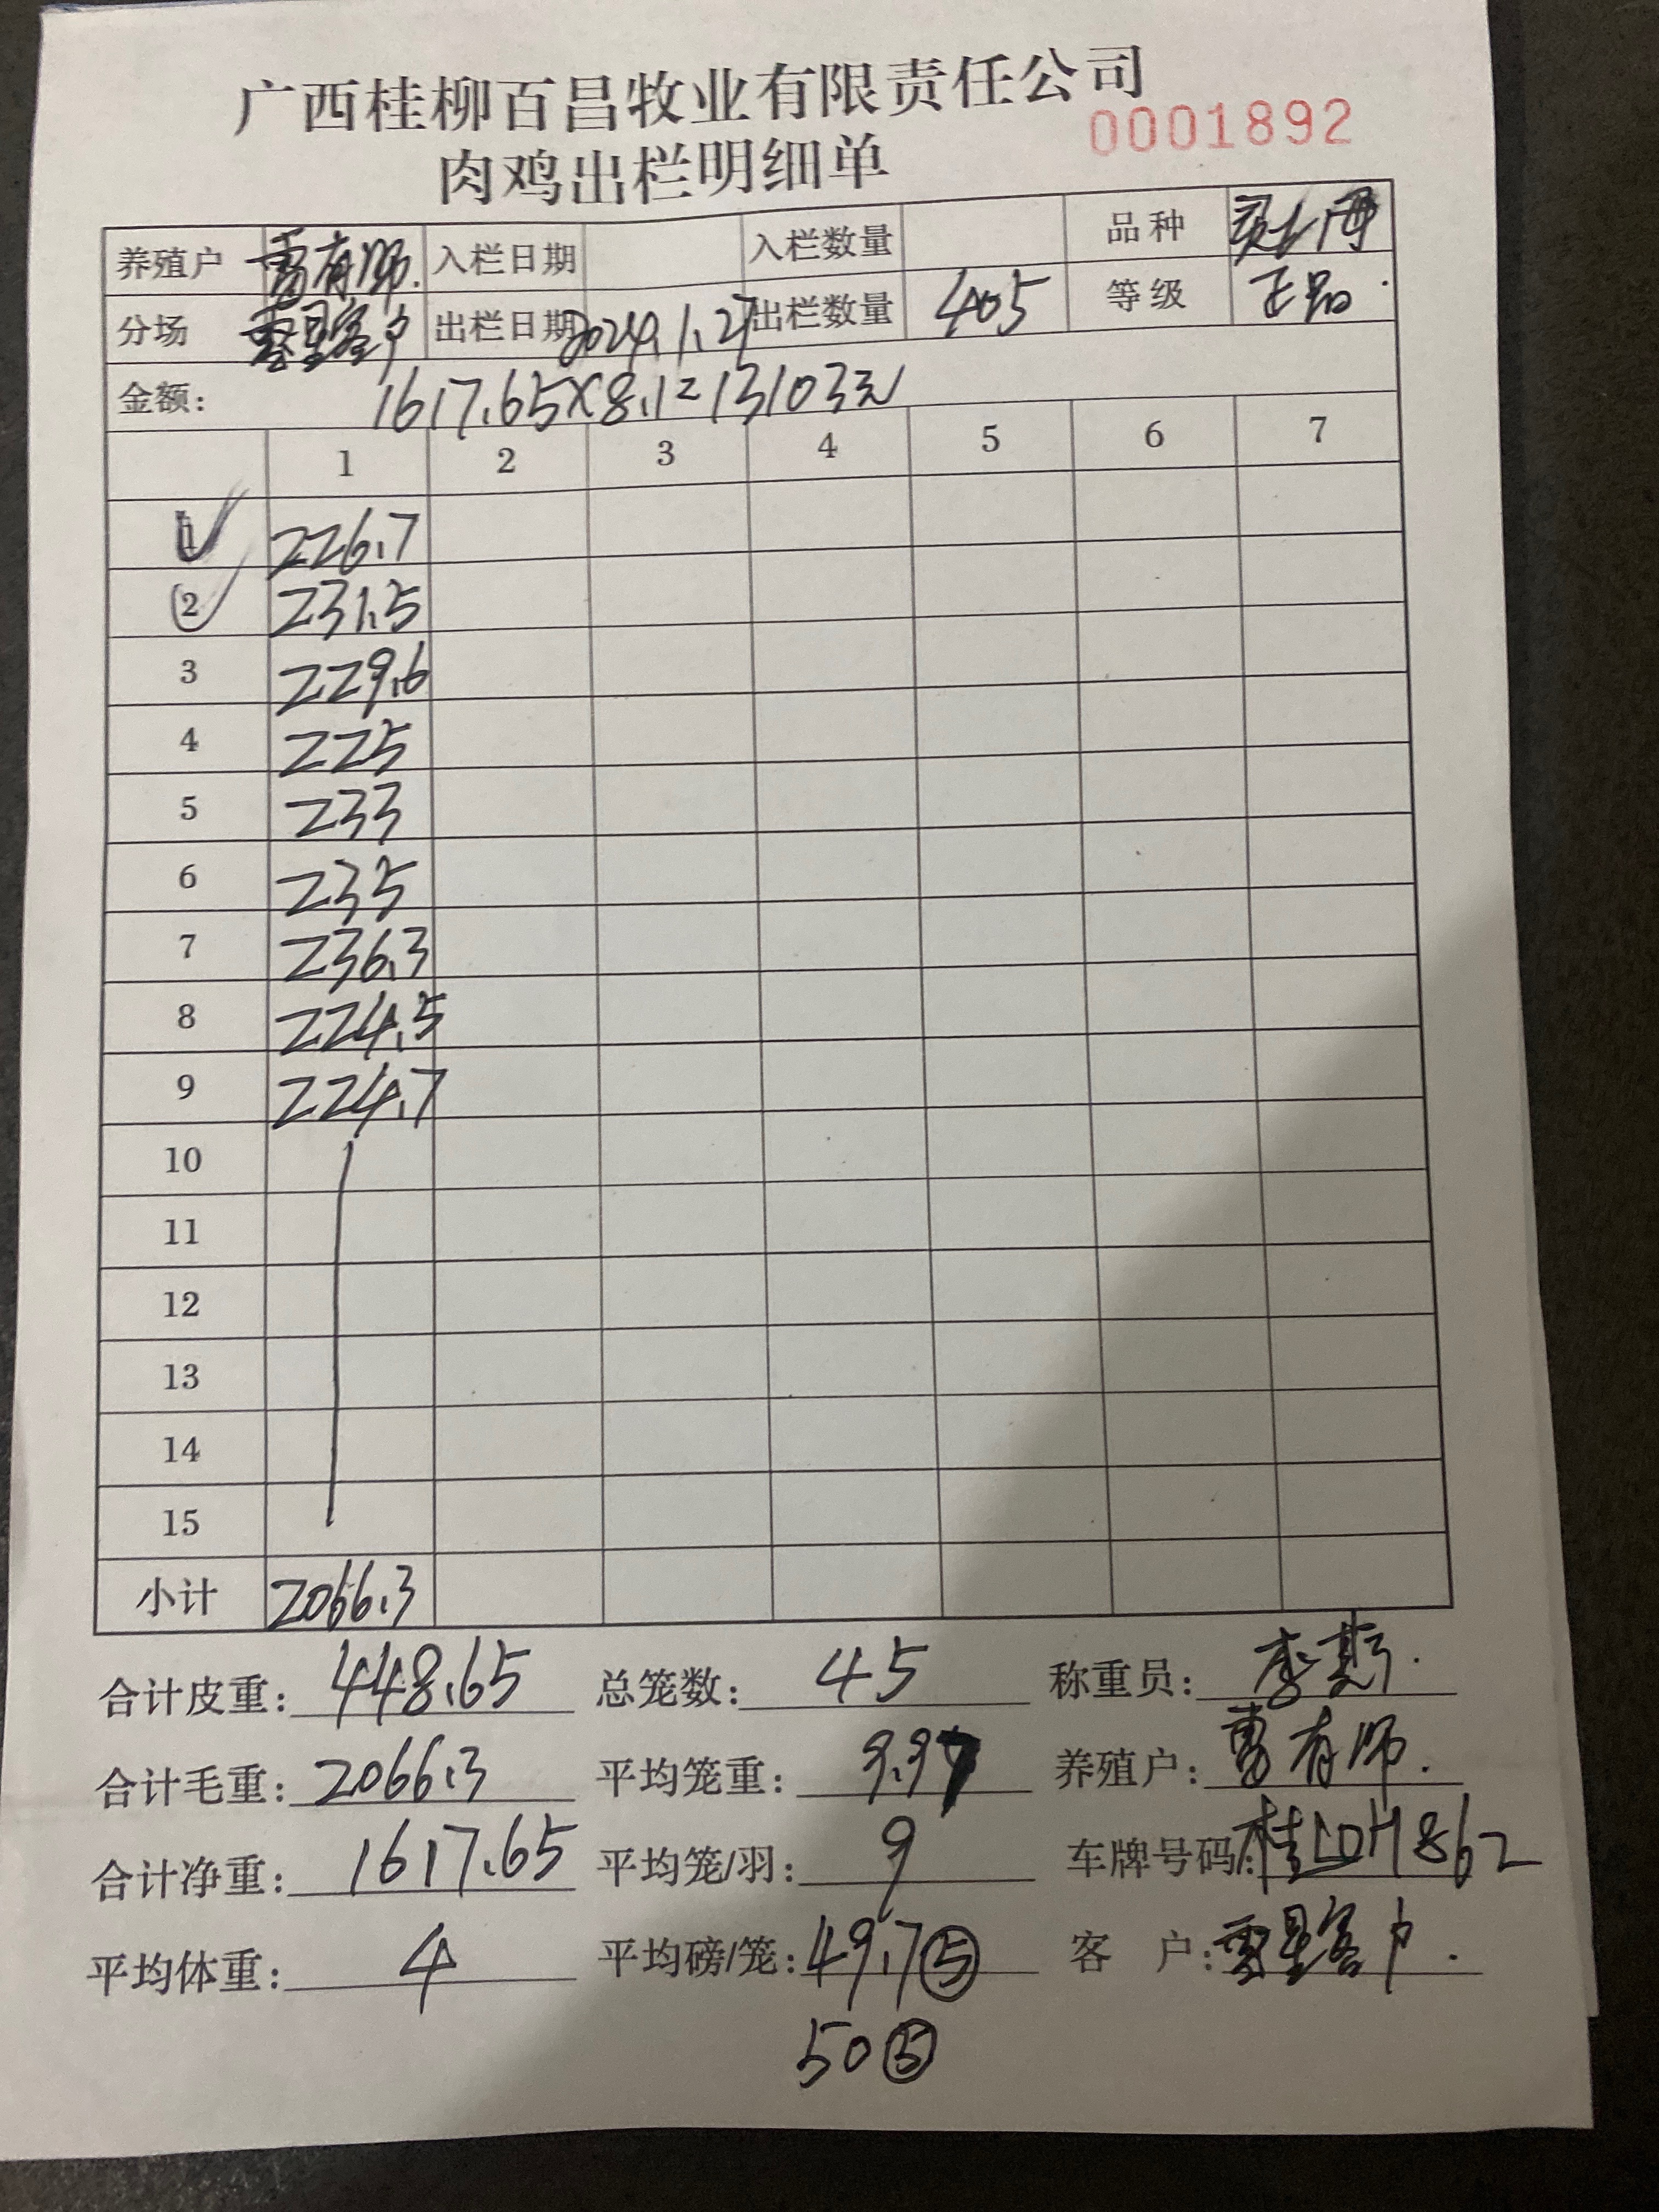 广西桂柳百昌牧业有限责任公司
0001892
肉鸡出栏明细单
养殖户 有师. 入栏日期 入栏数量 品种
分场 客户 出栏日期 2024.1.27 出栏数量 405 等级 正品.
金额: 1617.65×8.1=13103元
1 2 3 4 5 6 7
1 226.7
2 231.5
3 229.6
4 225
5 233
6 235
7 236.3
8 224.5
9 224.7
10
11
12
13
14
15
小计 2066.3
合计皮重: 448.65 总笼数: 45 称重员: 李
合计毛重: 2066.3 平均笼重: 9.97 养殖户: 有师.
合计净重: 1617.65 平均笼/羽: 9 车牌号码: 桂LDH862
平均体重: 4 平均磅/笼: 49.7⑤ 客 户: 客户.
50⑤